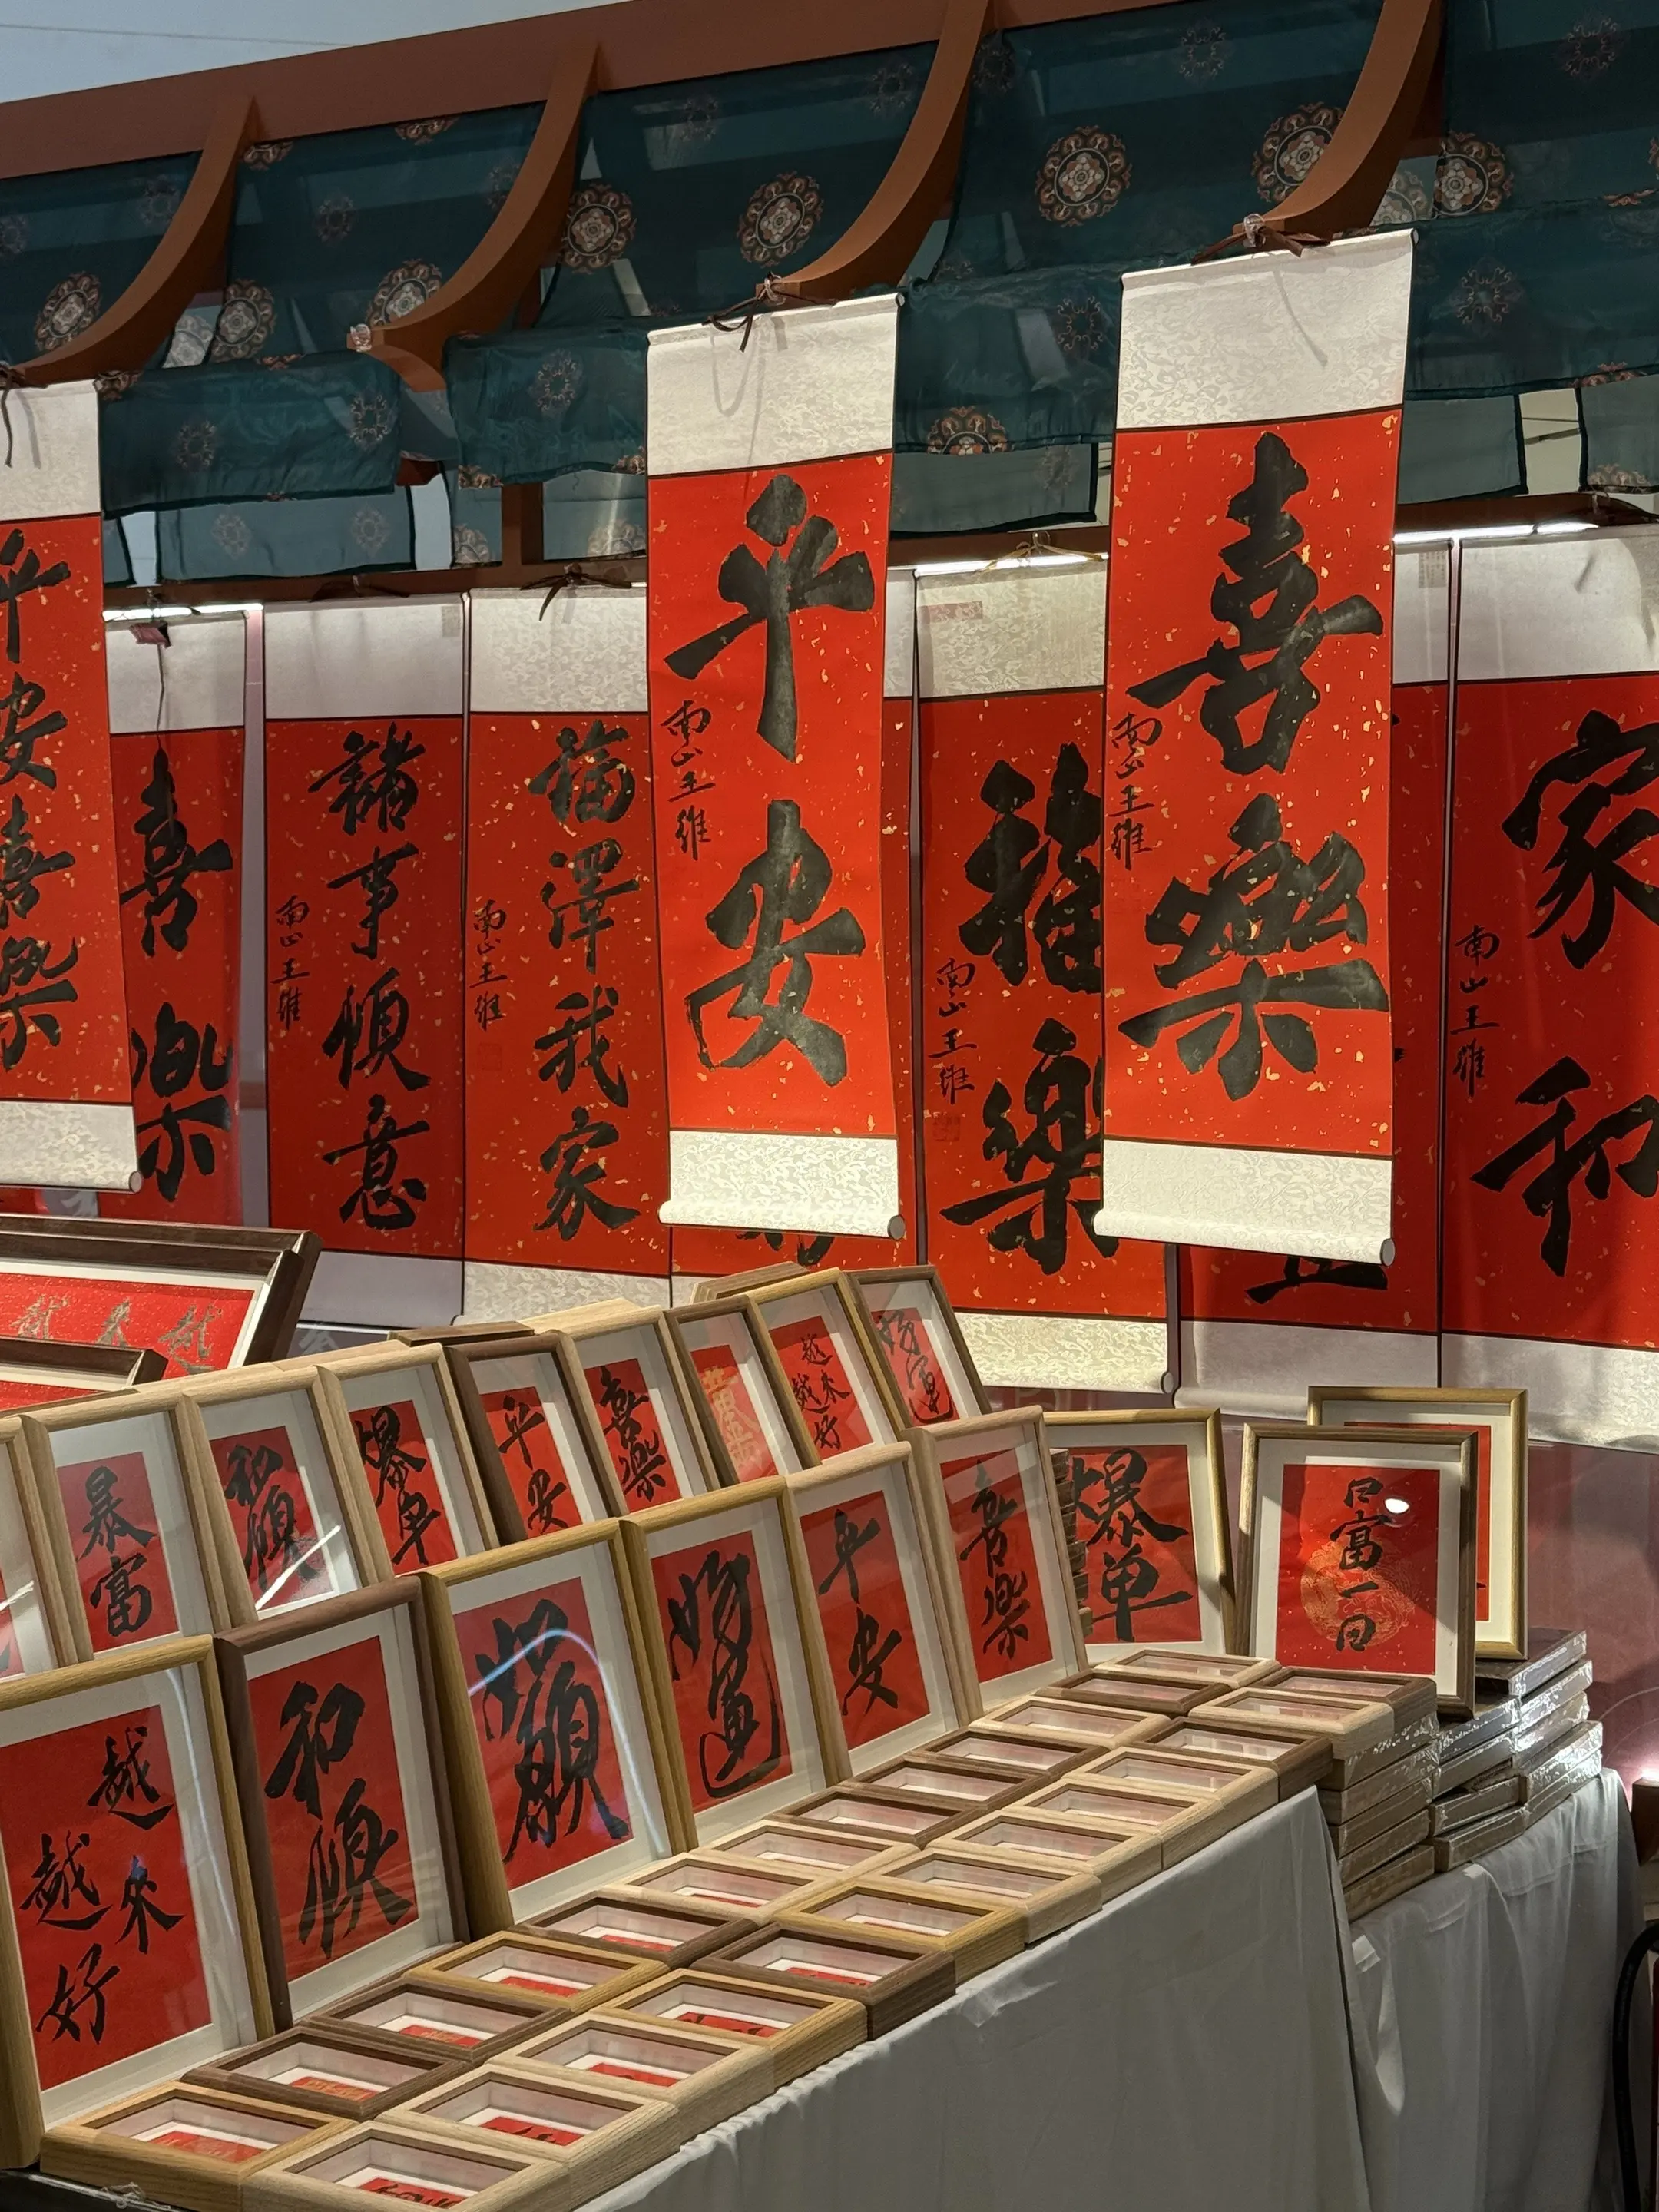 平安喜樂
喜樂
諸事順意
南山王維
福澤我家
南山王維
平安
南山王維
福樂
南山王維
喜樂
南山王維
家和
南山王維
越來越
暴富
和順
爆单
平安
喜樂
越來越好
好運
越來越好
和順
好運
平安
喜樂
爆单
日富一日